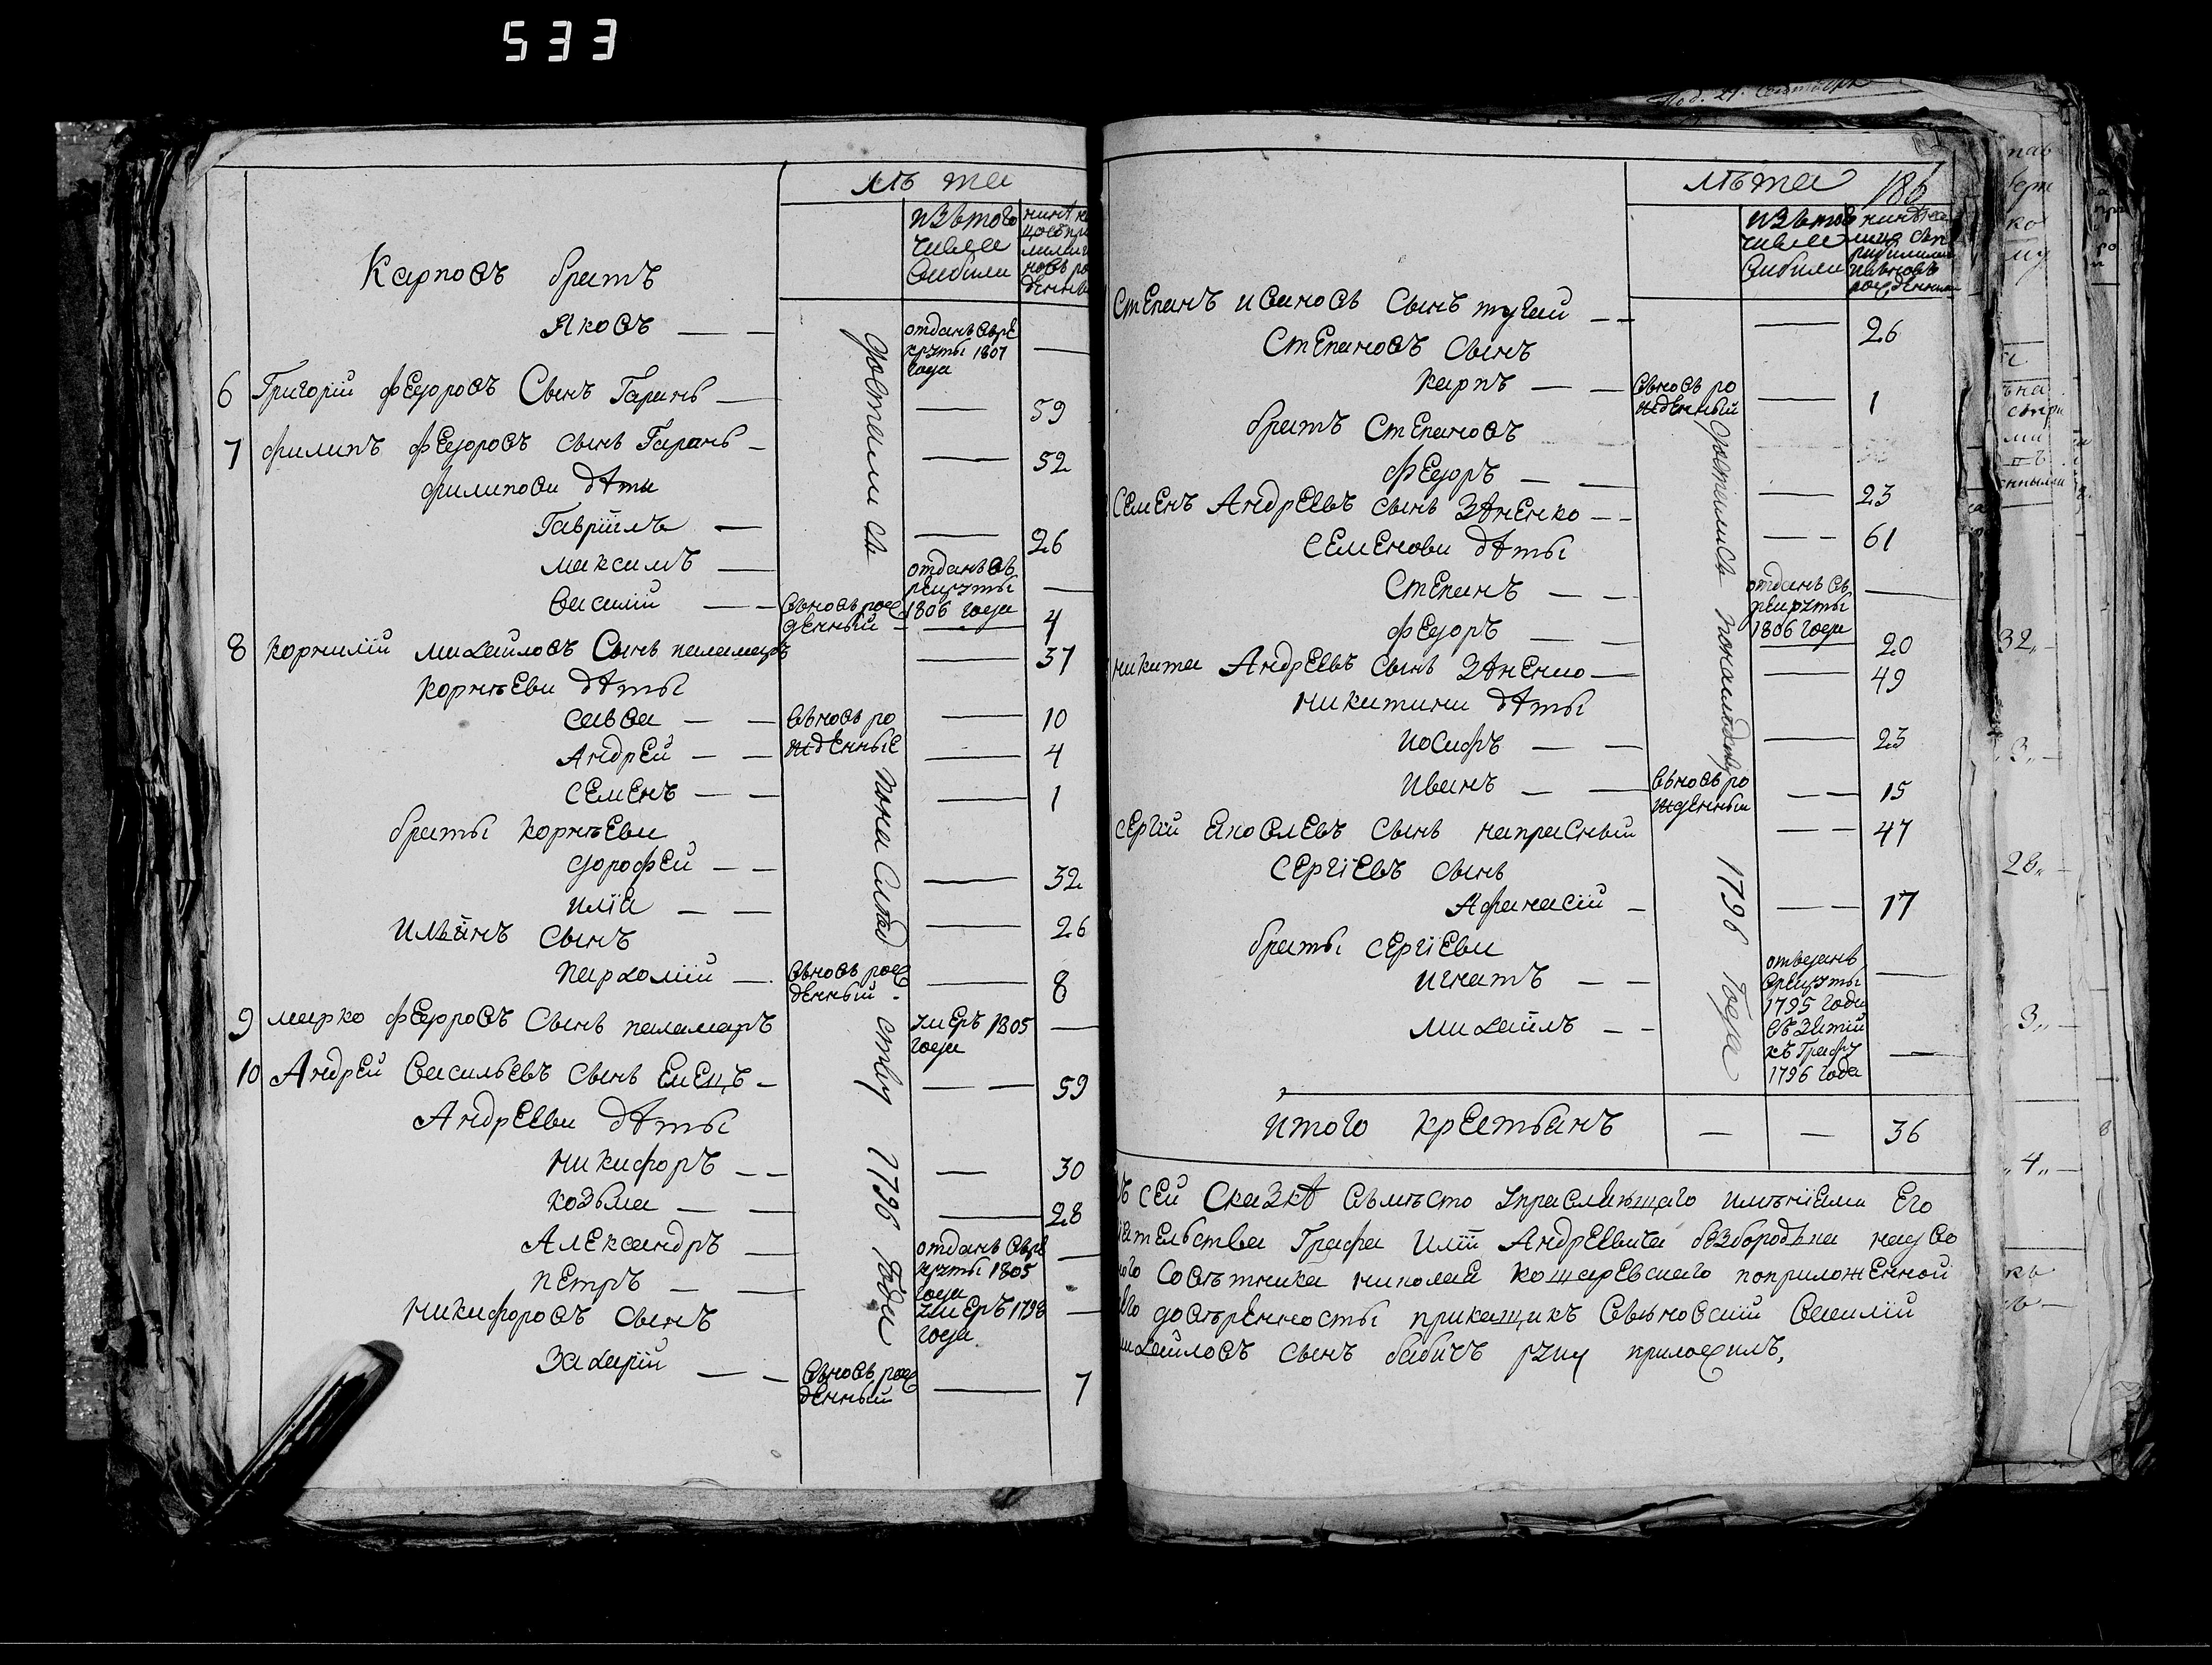 533
лѣта
изътого числа выбыли
Карповъ братъ
Яковъ — — отданъ вре круты 1807 года —
6 Григорїй федоровъ Сынъ Гарань — — 59
7 филипъ федоровъ сынъ Гарань — — 52
филипови дѣти
Гаврїилъ — — 26
максимъ — отданъ въ рекруты 1806 года —
василїй — — вьновь рож денный — 4
8 корнилїй михайловъ Сынъ паламаръ — 37
корнѣеви дѣты
савва — — вьновь ро жденные — 10
Андрей — — — 4
семенъ — — — 1
браты корнѣеви
дорофей — — — 32
илїа — — — 26
Ильинъ сынъ
пархомїй — вьновь рож денный — 8
9 марко федоровъ Сынъ паламаръ умеръ 1805 года —
10 Андрей Васильевъ сынъ Емецъ — — — 59
Андрееви дѣты
никифоръ — — — 30
козьма — — — 28
Александръ — отданъ врек круты 1805 года —
петръ — — умеръ 1798 года —
никифоровъ сынъ
захарїй — — вьновь рож денный — 7
досталися понаслѣдству 1796 года
лѣта 186
изътого числа выбыли
Степанъ ивановъ Сынъ тугай — — — 26
Степановъ сынъ
карпъ — — вьновь ро жденный — 1
братъ Степановъ
федоръ — — — 23
Семенъ Андреевъ сынъ зѣненко — — — — 61
семенови дѣты
Степанъ — — отданъ въ рекруты 1806 года —
федоръ — — — 20
никита Андреевъ сынъ зѣненко — — 49
никитини дѣты
иосифъ — — — 23
иванъ — — вьновь ро жденный — — 15
Сергїй яковлевъ сынъ напрасный — — 47
Сергїевъ сынъ
Афанасїй — — — 17
браты сергїеви
игнатъ — — отъданъ врекруты 1795 года —
михаилъ — — въ зятїй къ Графу 1796 года —
досталися понаслѣдству 1796 года
итого крестьянъ — — 36
сей сказкѣ вьмѣсто управляющаго имѣнїями Его
Графа илїи Андреевича безбородька надво
Совѣтника николая кощаревскаго поприложенной
довѣренности прикащикъ василїй
михайловъ сынъ бабичъ руку приложилъ,